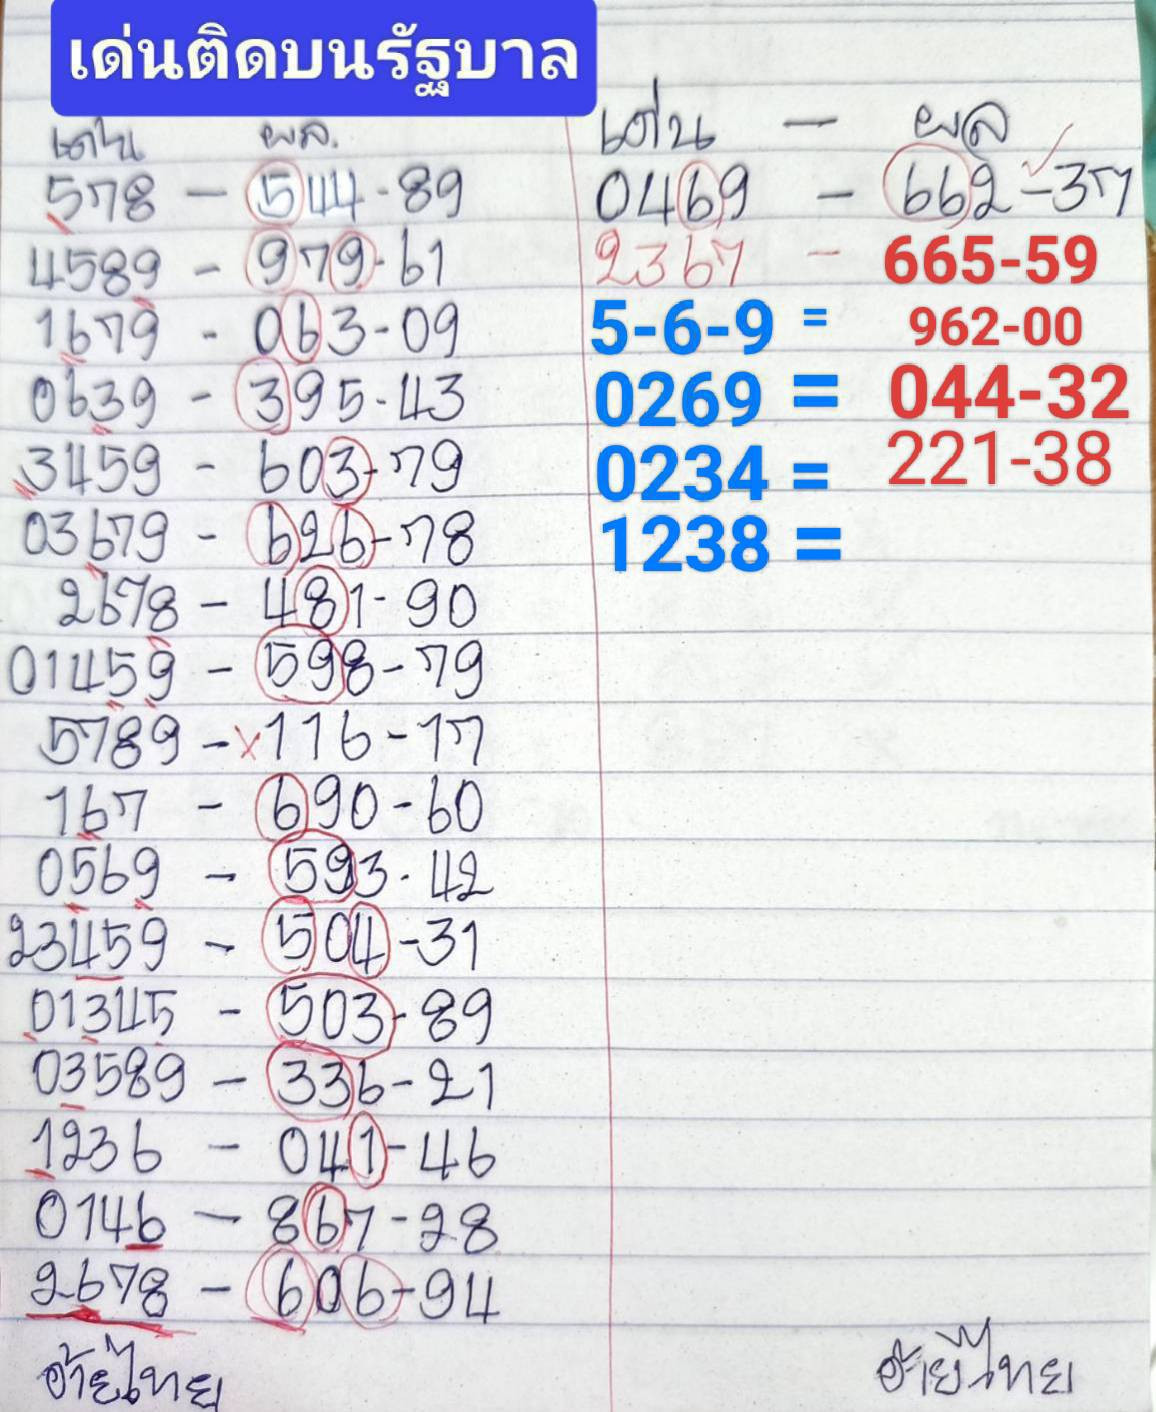 เด่นติดบนรัฐบาล
เด่น ผล.
578 - 544-89
4589 - 979-61
1679 - 063-09
0639 - 395-43
3459 - 603-79
03679 - 626-78
2678 - 481-90
01459 - 598-79
5789 - x116-17
167 - 690-60
0569 - 593-42
23459 - 504-31
01345 - 503-89
03589 - 336-21
1236 - 041-46
0146 - 867-28
2678 - 606-94
อ้ายไทย
เด่น - ผล
0469 - 662-37
2367 - 665-59
5-6-9 = 962-00
0269 = 044-32
0234 = 221-38
1238 =
อ้ายไทย